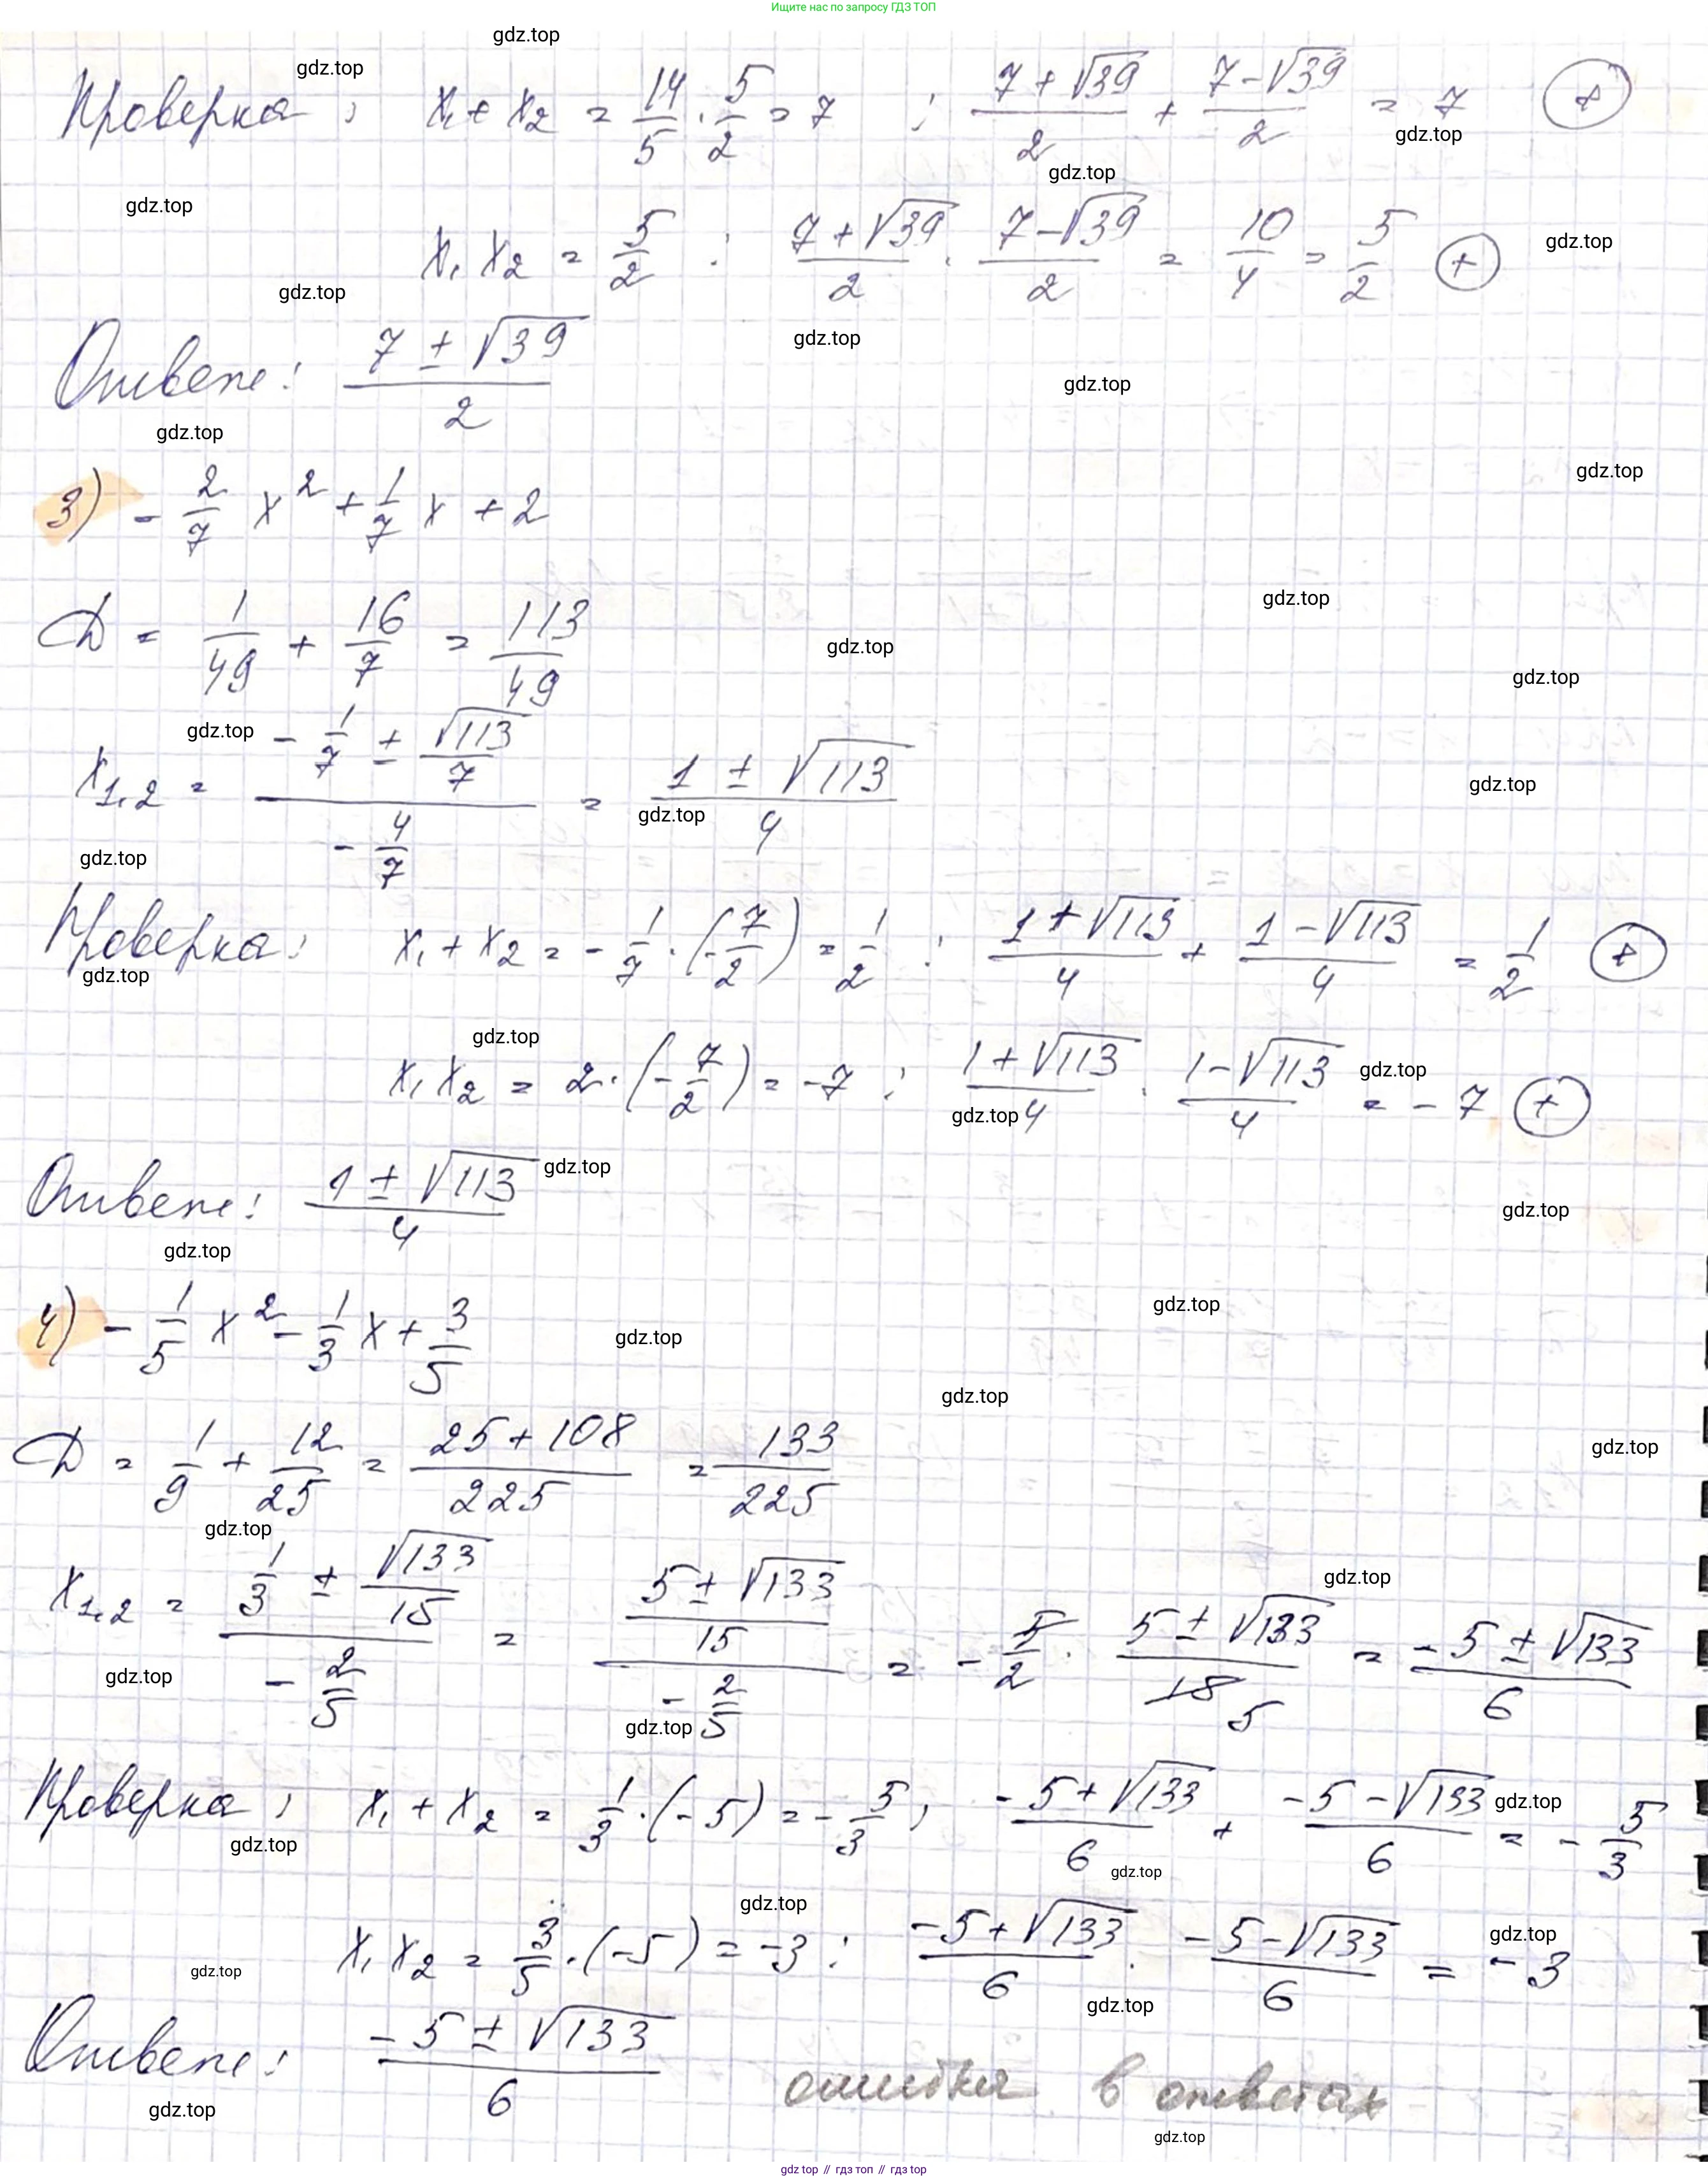 Ищите нас по запросу ГДЗ ТОП
gdz.top
gdz.top
Проверка: x₁ + x₂ = 14/5 · 5/2 = 7 ; (7 + √39)/2 + (7 - √39)/2 = 7 (+)
gdz.top
gdz.top
gdz.top
x₁ x₂ = 5/2 : (7 + √39)/2 · (7 - √39)/2 = 10/4 = 5/2 (+)
gdz.top
gdz.top
gdz.top
Ответ: (7 ± √39)/2
gdz.top
gdz.top
gdz.top
3) - 2/7 x² + 1/7 x + 2
gdz.top
D = 1/49 + 16/7 = 113/49
gdz.top
gdz.top
gdz.top
x₁,₂ = (- 1/7 ± √113/7)/(- 4/7) = (1 ± √113)/4
gdz.top
gdz.top
gdz.top
Проверка: x₁ + x₂ = - 1/7 · (- 7/2) = 1/2 : (1 + √113)/4 + (1 - √113)/4 = 1/2 (+)
gdz.top
gdz.top
x₁ x₂ = 2 · (- 7/2) = -7 : (1 + √113)/4 · (1 - √113)/4 = - 7 (+)
gdz.top
gdz.top
Ответ: (1 ± √113)/4
gdz.top
gdz.top
gdz.top
4) - 1/5 x² - 1/3 x + 3/5
gdz.top
gdz.top
gdz.top
D = 1/9 + 12/25 = (25 + 108)/225 = 133/225
gdz.top
gdz.top
x₁,₂ = (1/3 ± √133/15)/(- 2/5) = ((5 ± √133)/15)/(- 2/5) = - 5/2 · (5 ± √133)/15 5 = (- 5 ± √133)/6
gdz.top
gdz.top
gdz.top
Проверка: x₁ + x₂ = 1/3 · (- 5) = - 5/3 ; (- 5 + √133)/6 + (- 5 - √133)/6 = - 5/3
gdz.top
gdz.top
gdz.top
gdz.top
x₁ x₂ = 3/5 · (-5) = -3 : (-5 + √133)/6 · (-5 - √133)/6 = - 3
gdz.top
gdz.top
gdz.top
Ответ: (- 5 ± √133)/6
ошибка в ответах
gdz.top
gdz.top
gdz.top // гдз топ // gdz top